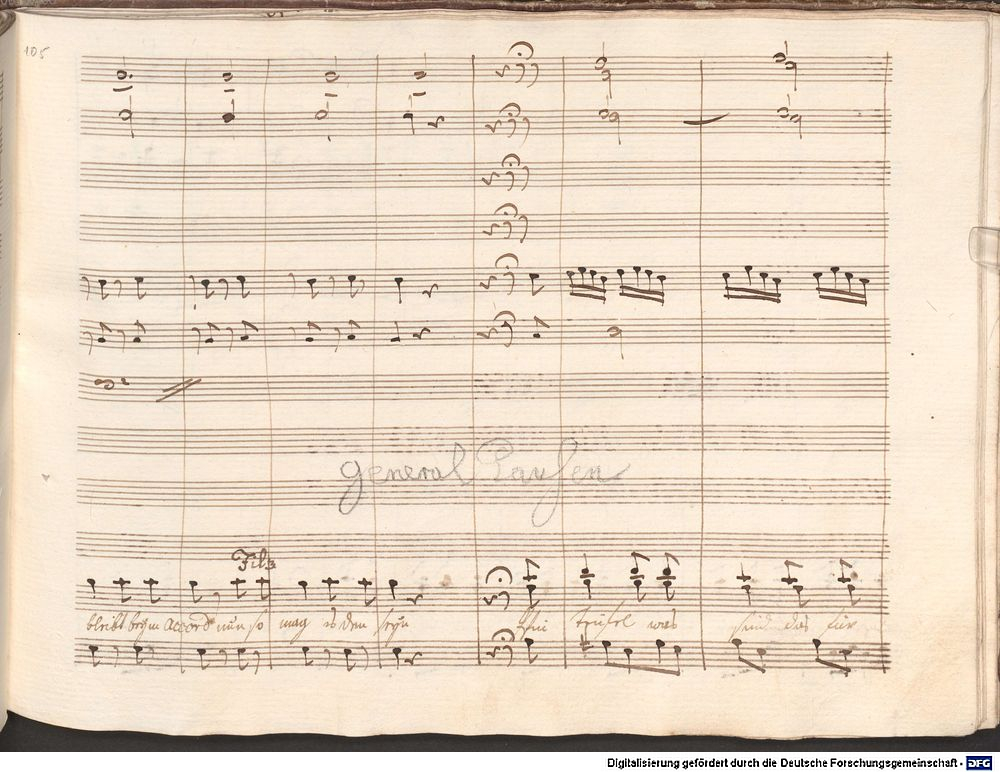 105
general Pausen
Filz
bleibt beym accord nun so mag es den seyn
Pfui Teufel was sind das für
Digitalisierung gefördert durch die Deutsche Forschungsgemeinschaft - DFG